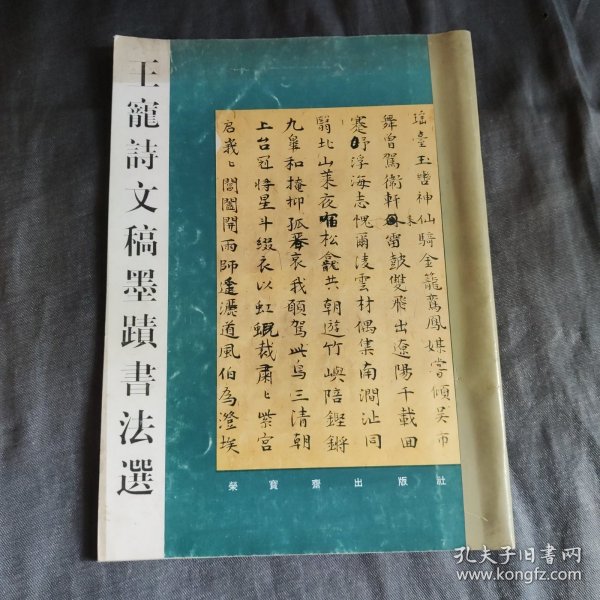 王寵詩文稿墨蹟書法選
瑤臺玉齒神仙騎金籠鸞鳳媒嘗傾吴市
舞曾駕衛軒來雷鼓雙飛出遼陽千載回
蹇野浮海志愧爾凌雲材偶集南澗沚同
翳北山萊夜宿松龕共朝遊竹嶼陪鏗鏘
九皋和掩抑孤騫哀我願駕此鳥三清朝
上台冠將星斗綴衣以虹霓裁肅〻紫宮
启峩〻閶闔開雨師逢灑道風伯為澄埃
榮寶齋出版社
孔夫子旧书网
www.kongfz.com